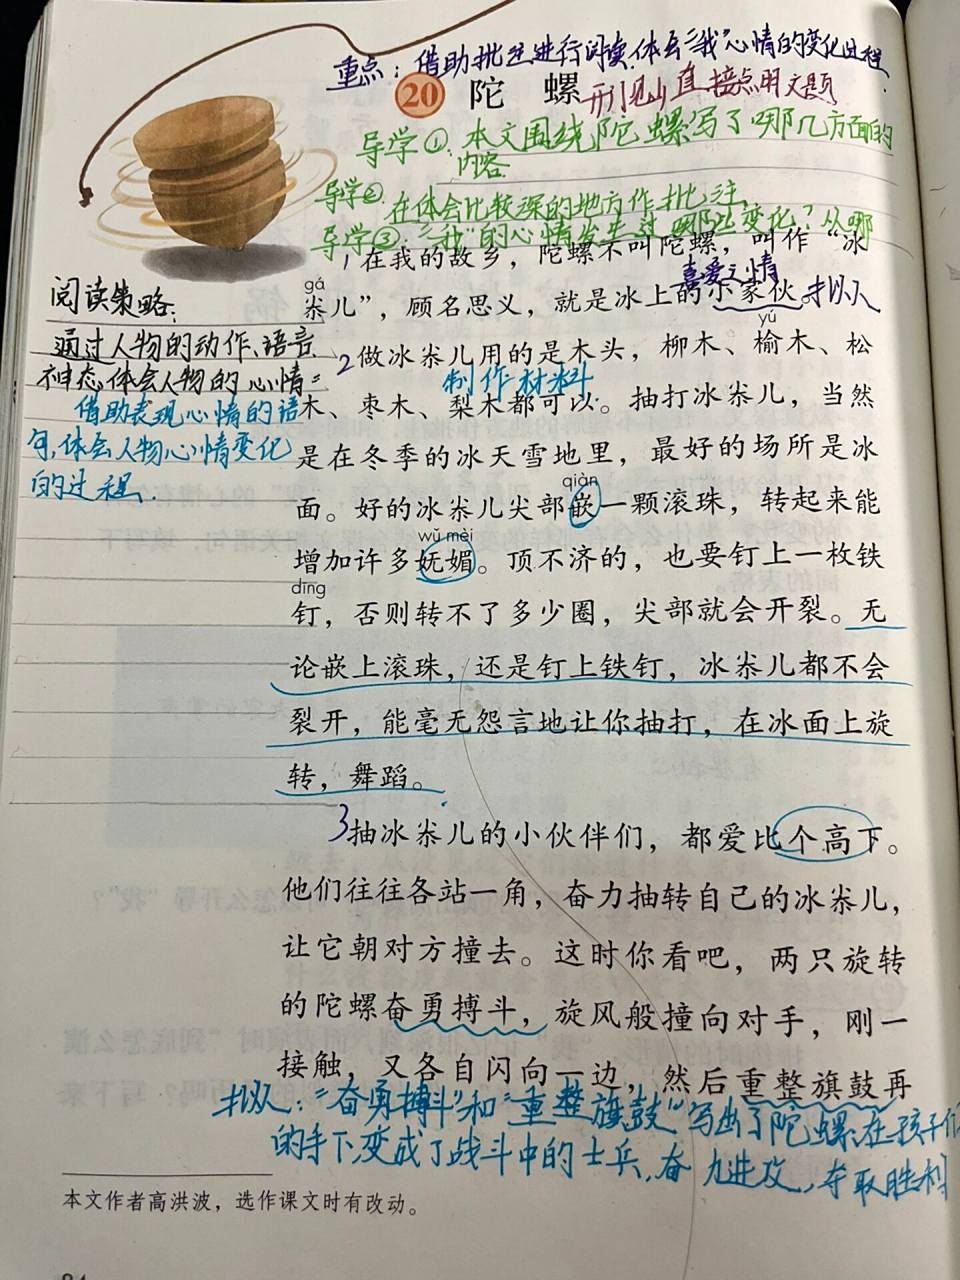 重点：借助批注进行阅读.体会“我”心情的变化过程.
20 陀 螺 开门见山 直接点明文题
导学①.本文围绕陀螺写了哪几方面的
内容
导学②.在体会比较深的地方作批注,
导学③.“我”的心情发生过哪些变化?从哪
1在我的故乡，陀螺不叫陀螺，叫作“冰
喜爱之情
gá
尜儿”，顾名思义，就是冰上的小家伙。拟人
阅读策略:
通过人物的动作、语言
神态,体会人物的心情=
借助表现心情的语
句,体会人物心情变化
的过程.
yú
2做冰尜儿用的是木头，柳木、榆木、松
制作材料
木、枣木、梨木都可以。抽打冰尜儿，当然
是在冬季的冰天雪地里，最好的场所是冰
qiàn
面。好的冰尜儿尖部嵌一颗滚珠，转起来能
wǔ mèi
增加许多妩媚。顶不济的，也要钉上一枚铁
dīng
钉，否则转不了多少圈，尖部就会开裂。无
论嵌上滚珠，还是钉上铁钉，冰尜儿都不会
裂开，能毫无怨言地让你抽打，在冰面上旋
转，舞蹈。
3抽冰尜儿的小伙伴们，都爱比个高下。
他们往往各站一角，奋力抽转自己的冰尜儿，
让它朝对方撞去。这时你看吧，两只旋转
的陀螺奋勇搏斗，旋风般撞向对手，刚一
接触，又各自闪向一边，然后重整旗鼓再
拟人:“奋勇搏斗”和“重整旗鼓”写出了陀螺在孩子们
的手下,变成了战斗中的士兵,奋力进攻,夺取胜利
本文作者高洪波，选作课文时有改动。